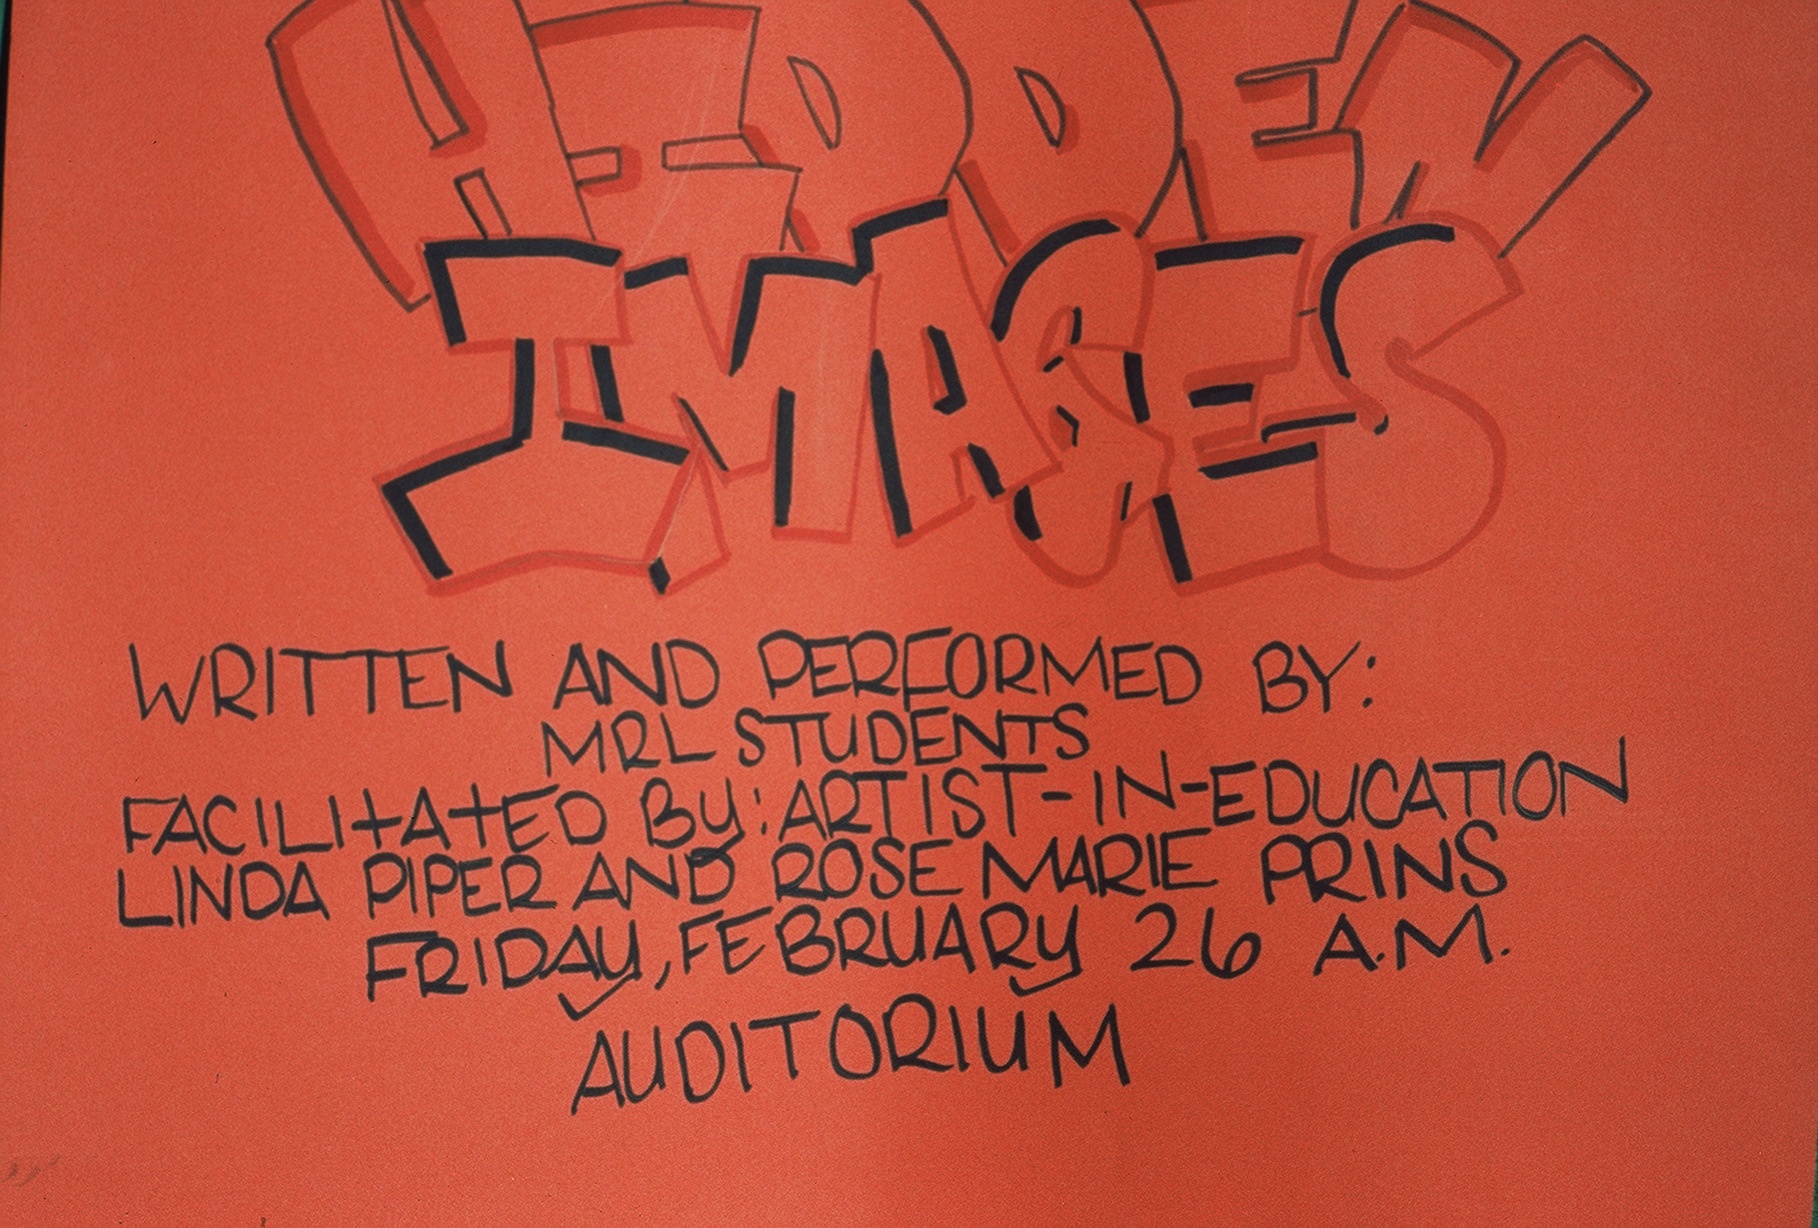 HIDDEN
IMAGES
WRITTEN AND PERFORMED BY:
MRL STUDENTS
FACILITATED BY: ARTIST-IN-EDUCATION
LINDA PIPER AND ROSE MARIE PRINS
FRIDAY, FEBRUARY 26 A.M.
AUDITORIUM